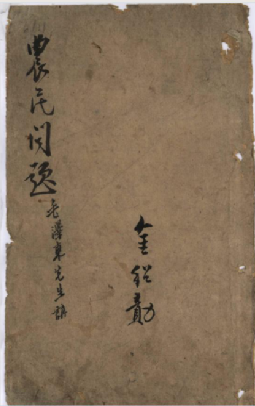 農民問題
毛澤東先生講
金絍勛